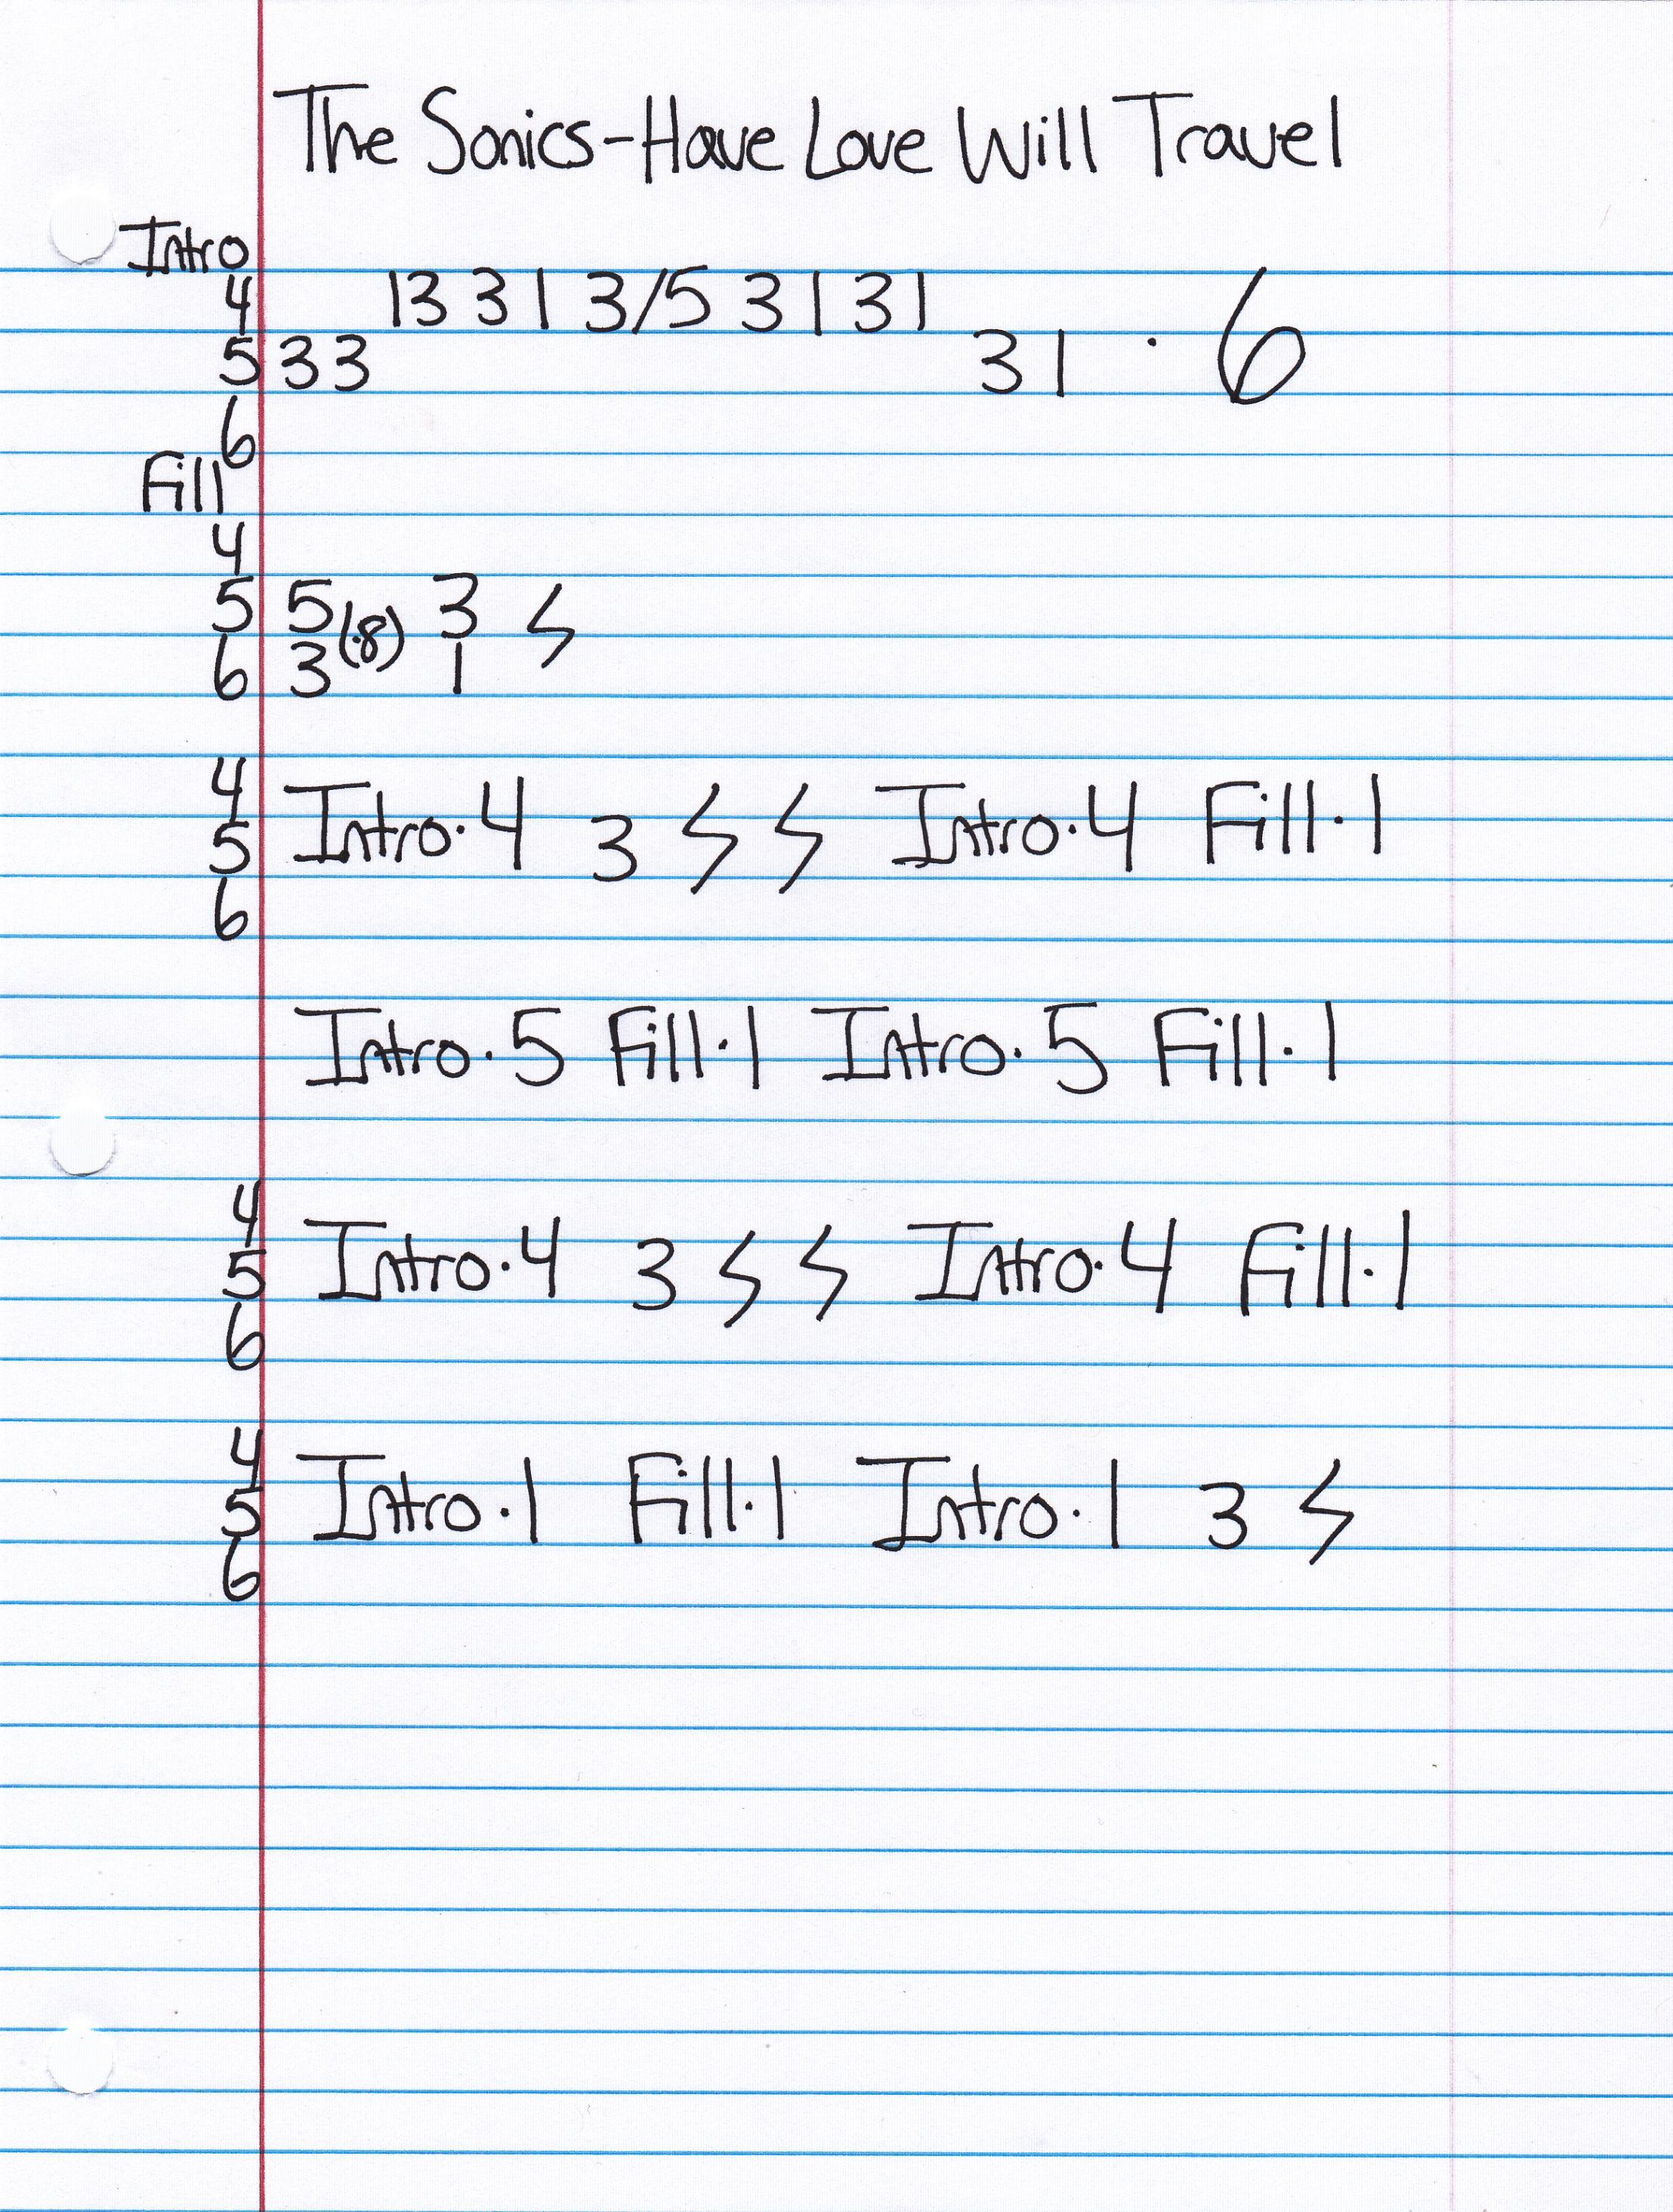 The Sonics-Have Love Will Travel
Intro
4 13 3 1 3/5 3 1 31
5 33 31 · 6
6
Fill
4
5 5 (·8) 3 ϟ
6 3 1
4
5 Intro·4 3 ϟ ϟ Intro·4 Fill·1
6
Intro·5 Fill·1 Intro·5 Fill·1
4
5 Intro·4 3 ϟ ϟ Intro·4 Fill·1
6
4
5 Intro·1 Fill·1 Intro·1 3 ϟ
6